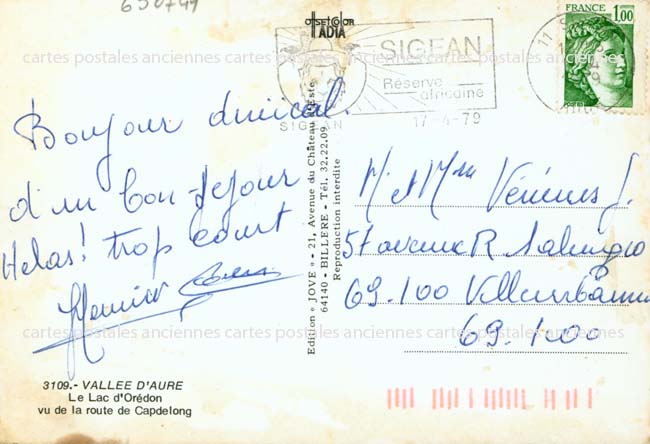 650749
offsetcolor
ADIA
FRANCE
1,00
SIGEAN
Réserve
africaine
SIGEAN
17-4-79
cartes postales anciennes cartes postales anciennes cartes postales anciennes
Bonjour amical
d'un bon séjour
Helas! trop court
Edition « JOVE » - 21, Avenue du Château d'Este
64140 - BILLERE - Tél. 32.22.09
Reproduction interdite
M. et Mme J.
57 avenue R Salengro
69.100 Villeurbanne
69.100
cartes postales anciennes cartes postales anciennes cartes postales anciennes
3109.- VALLEE D'AURE
Le Lac d'Orédon
vu de la route de Capdelong